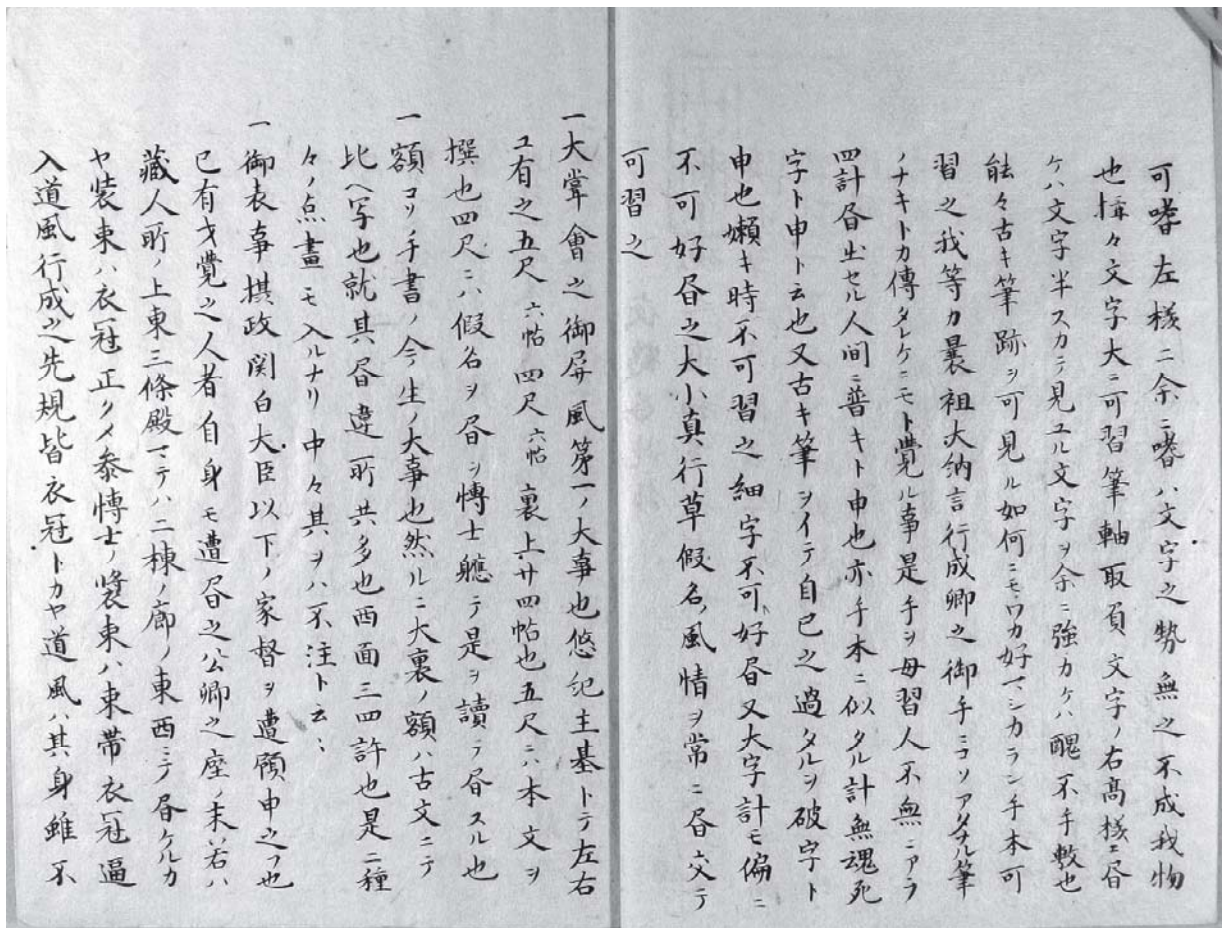 可嗜左様ニ余ニ嗜ハ文字之勢無之不成我物
也惣々文字大ニ可習筆軸取員文字ノ右高様ニ昼
ケハ文字半スカテ見ユル文字ヲ余ニ強カケハ醜不手数也
能々古キ筆跡ヲ可見ル如何ニモワカ好マシカラン手本可
習之我等カ曩祖大納言行成卿之御手ニコソアナル筆
ノナキトカ傳タレケニモト覚ル事是手ヲ母習人不無ニアラ
四計昼出セル人间ニ普キト申也亦手本ニ似タル計無魂死
字ト申ト云也又古キ筆ヲイテ自己之過タルヲ破字ト
申也嬾キ時不可習之細字不可好昼又大字計モ偏ニ
不可好昼之大小真行草假名ノ風情ヲ常ニ昼交テ
可習之
一大嘗會之御屏風第一ノ大事也悠紀主基トテ左右
ユ有之五尺六帖四尺六帖裏上廿四帖也五尺ニハ本文ヲ
撰也四尺ニハ假名ヲ昼ヲ慱士軈テ是ヲ讀テ昼スル也
一額コソ手書ノ今生ノ大事也然ルニ大裏ノ額ハ古文ニテ
比ヘ写也就其昼違所共多也西面三四許也是ニ種
々ノ点畫モ入ルナリ中々其ヲハ不注ト云〻
一御表事摂政関白大臣以下ノ家督ヲ遭顧申之フ也
已有才覺之人者自身モ遭昼之公卿之座ノ末ノ若ハ
藏人所ノ上東三條殿マテハ二棟ノ廊ノ東西ニテ昼ケルカ
ヤ装束ハ衣冠正クメ参慱士ノ装束ハ束帯衣冠逼
入道風行成之先規皆衣冠トカヤ道風ハ其身雖不